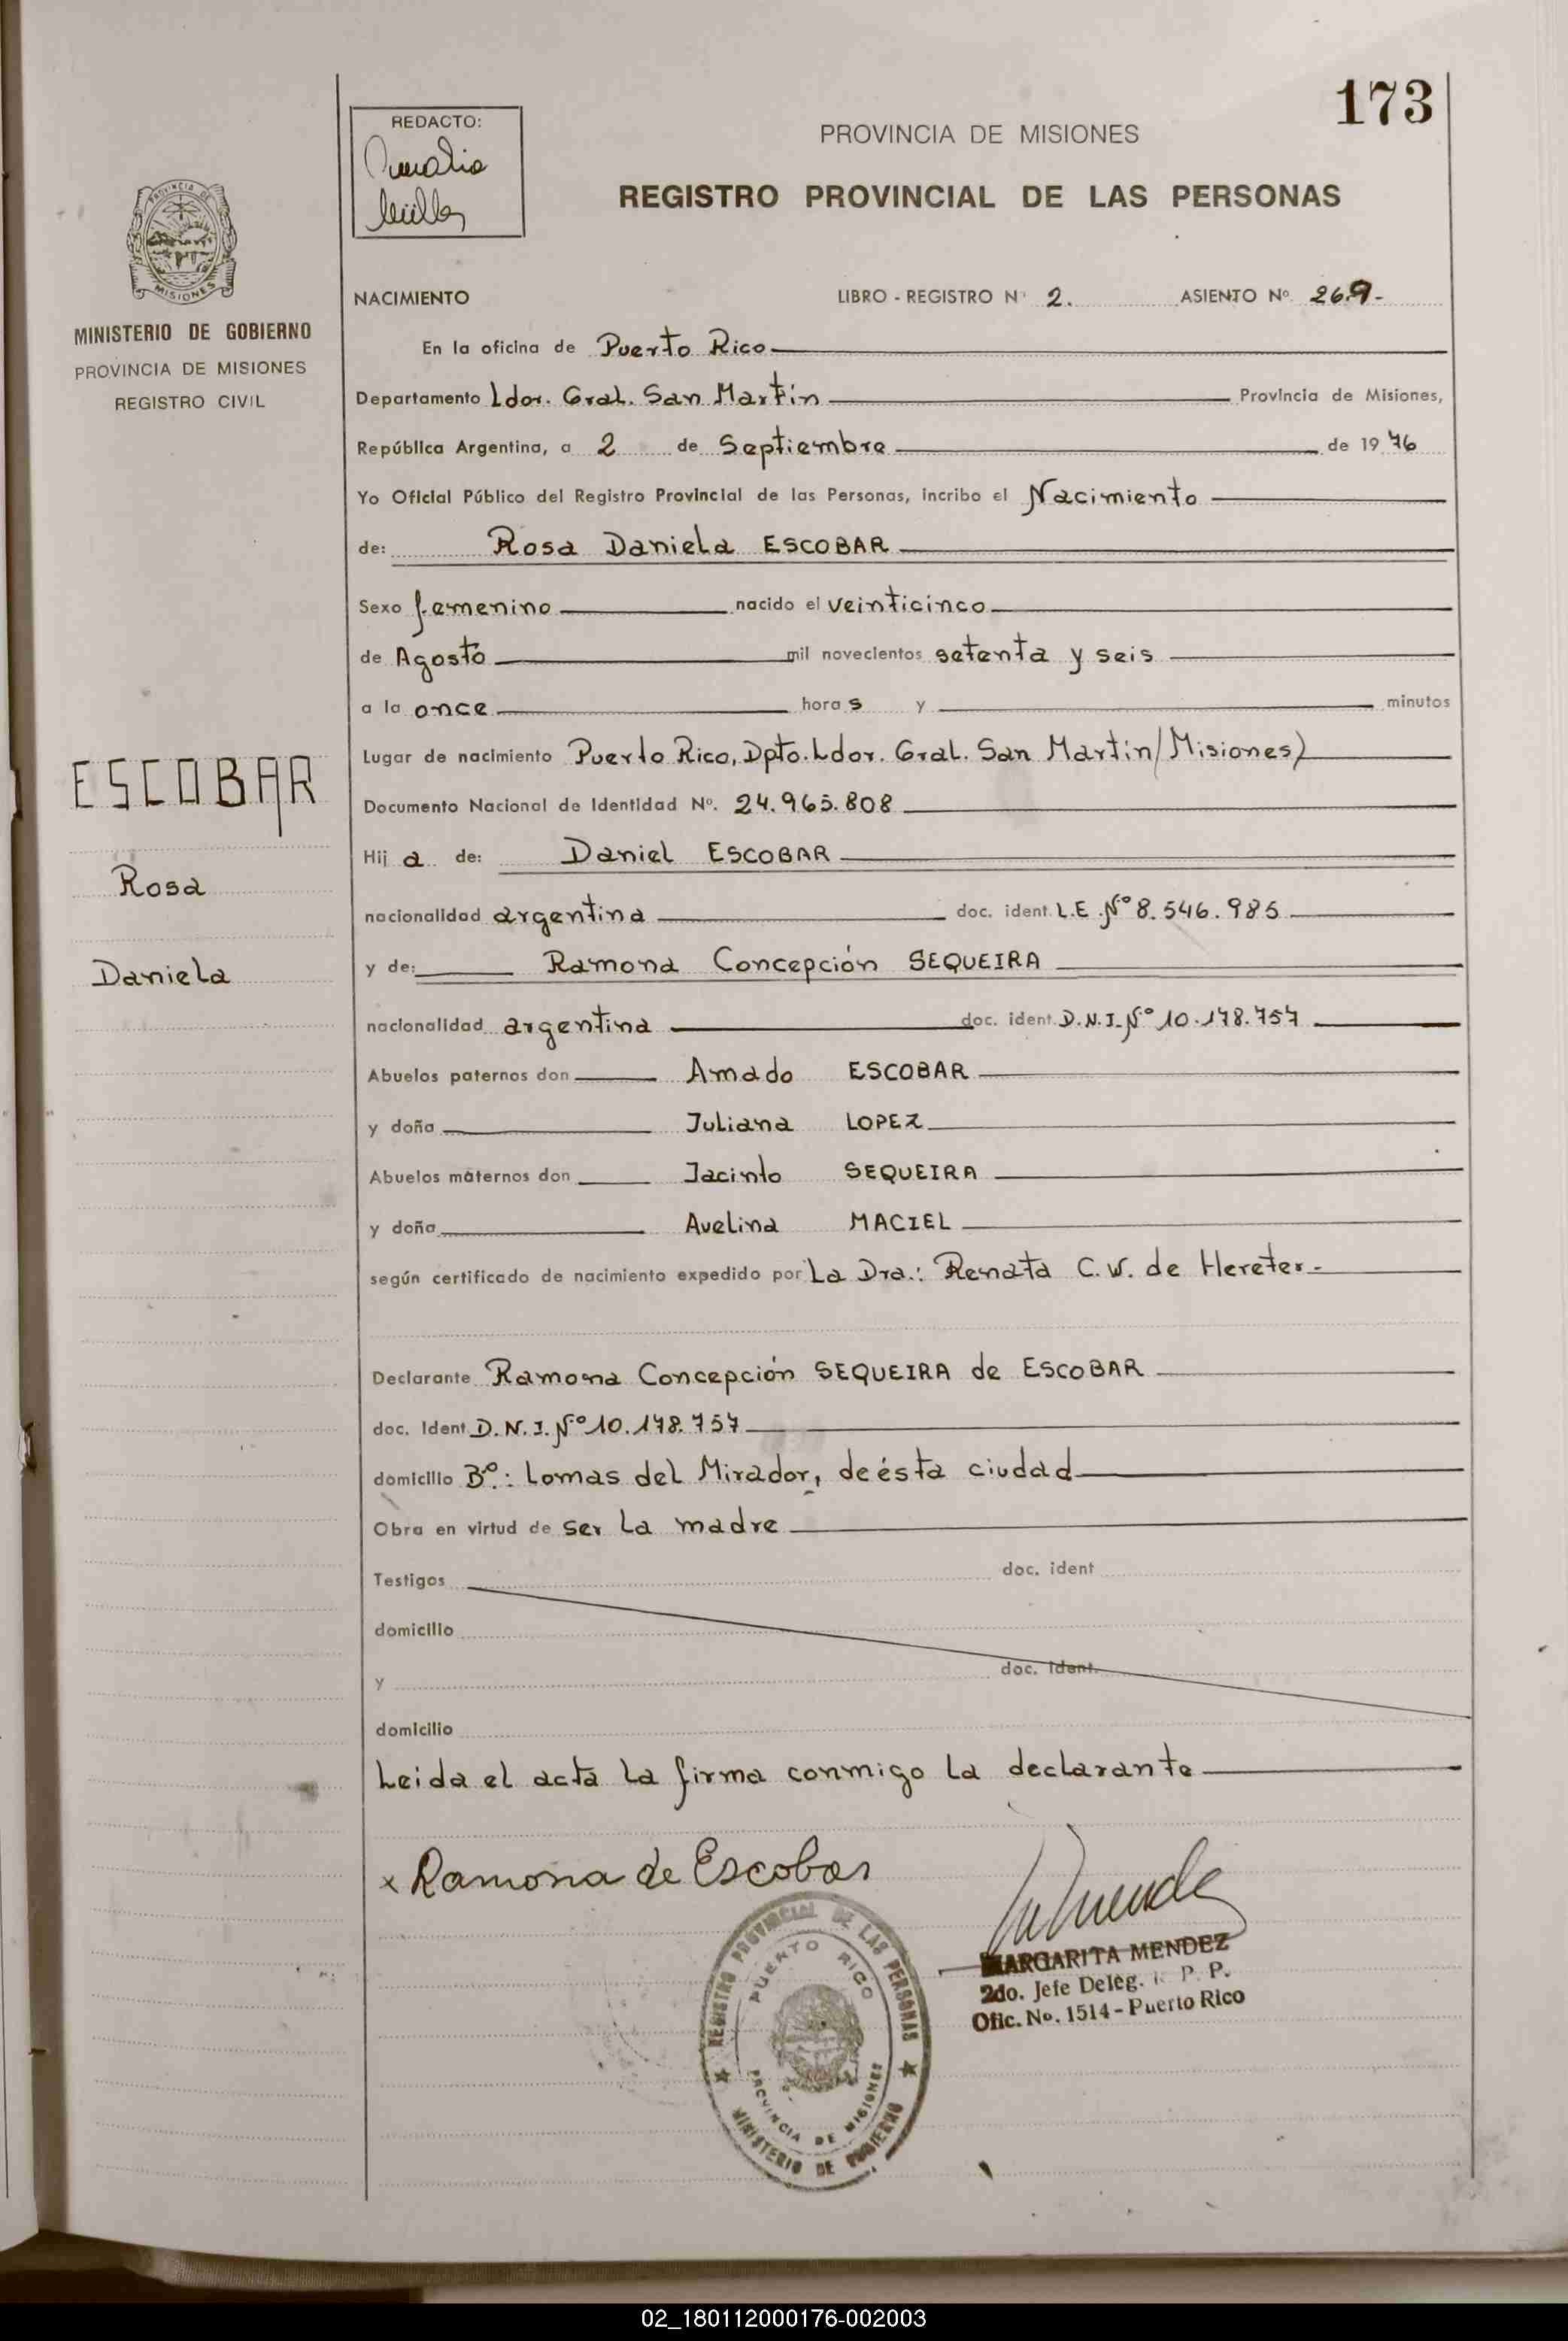 173
REDACTO:
PROVINCIA DE MISIONES
REGISTRO PROVINCIAL DE LAS PERSONAS
PROVINCIA DE
MISIONES
MINISTERIO DE GOBIERNO
PROVINCIA DE MISIONES
REGISTRO CIVIL
NACIMIENTO LIBRO - REGISTRO Nº 2. ASIENTO Nº 269-
En la oficina de Puerto Rico
Departamento Ldor. Gral. San Martín Provincia de Misiones,
República Argentina, a 2 de Septiembre de 19 76
Yo Oficial Público del Registro Provincial de las Personas, incribo el Nacimiento
de: Rosa Daniela ESCOBAR
Sexo femenino nacido el veinticinco
de Agosto mil novecientos setenta y seis
a la once horas y minutos
Lugar de nacimiento Puerto Rico, Dpto. Ldor. Gral. San Martín (Misiones)
Documento Nacional de Identidad Nº. 24.965.808
Hij a de: Daniel ESCOBAR
nacionalidad argentina doc. ident. L.E. Nº 8.546.985
y de: Ramona Concepción SEQUEIRA
nacionalidad argentina doc. ident. D.N.I. Nº 10.178.757
Abuelos paternos don Amado ESCOBAR
y doña Juliana LOPEZ
Abuelos maternos don Jacinto SEQUEIRA
y doña Avelina MACIEL
según certificado de nacimiento expedido por La Dra.: Renata C.W. de Hereter.-
Declarante Ramona Concepción SEQUEIRA de ESCOBAR
doc. Ident. D.N.I. Nº 10.178.757
domicilio Bº.: Lomas del Mirador, de ésta ciudad
Obra en virtud de ser la madre
Testigos doc. ident
domicilio
y doc. ident.
domicilio
Leida el acta la firma conmigo la declarante
ESCOBAR
Rosa
Daniela
x Ramona de Escobar
MARGARITA MENDEZ
2do. Jefe Deleg. R. P. P.
Ofic. No. 1514 - Puerto Rico
REGISTRO PROVINCIAL DE LAS PERSONAS
PUERTO RICO
PROVINCIA DE MISIONES
MINISTERIO DE GOBIERNO
02_180112000176-002003